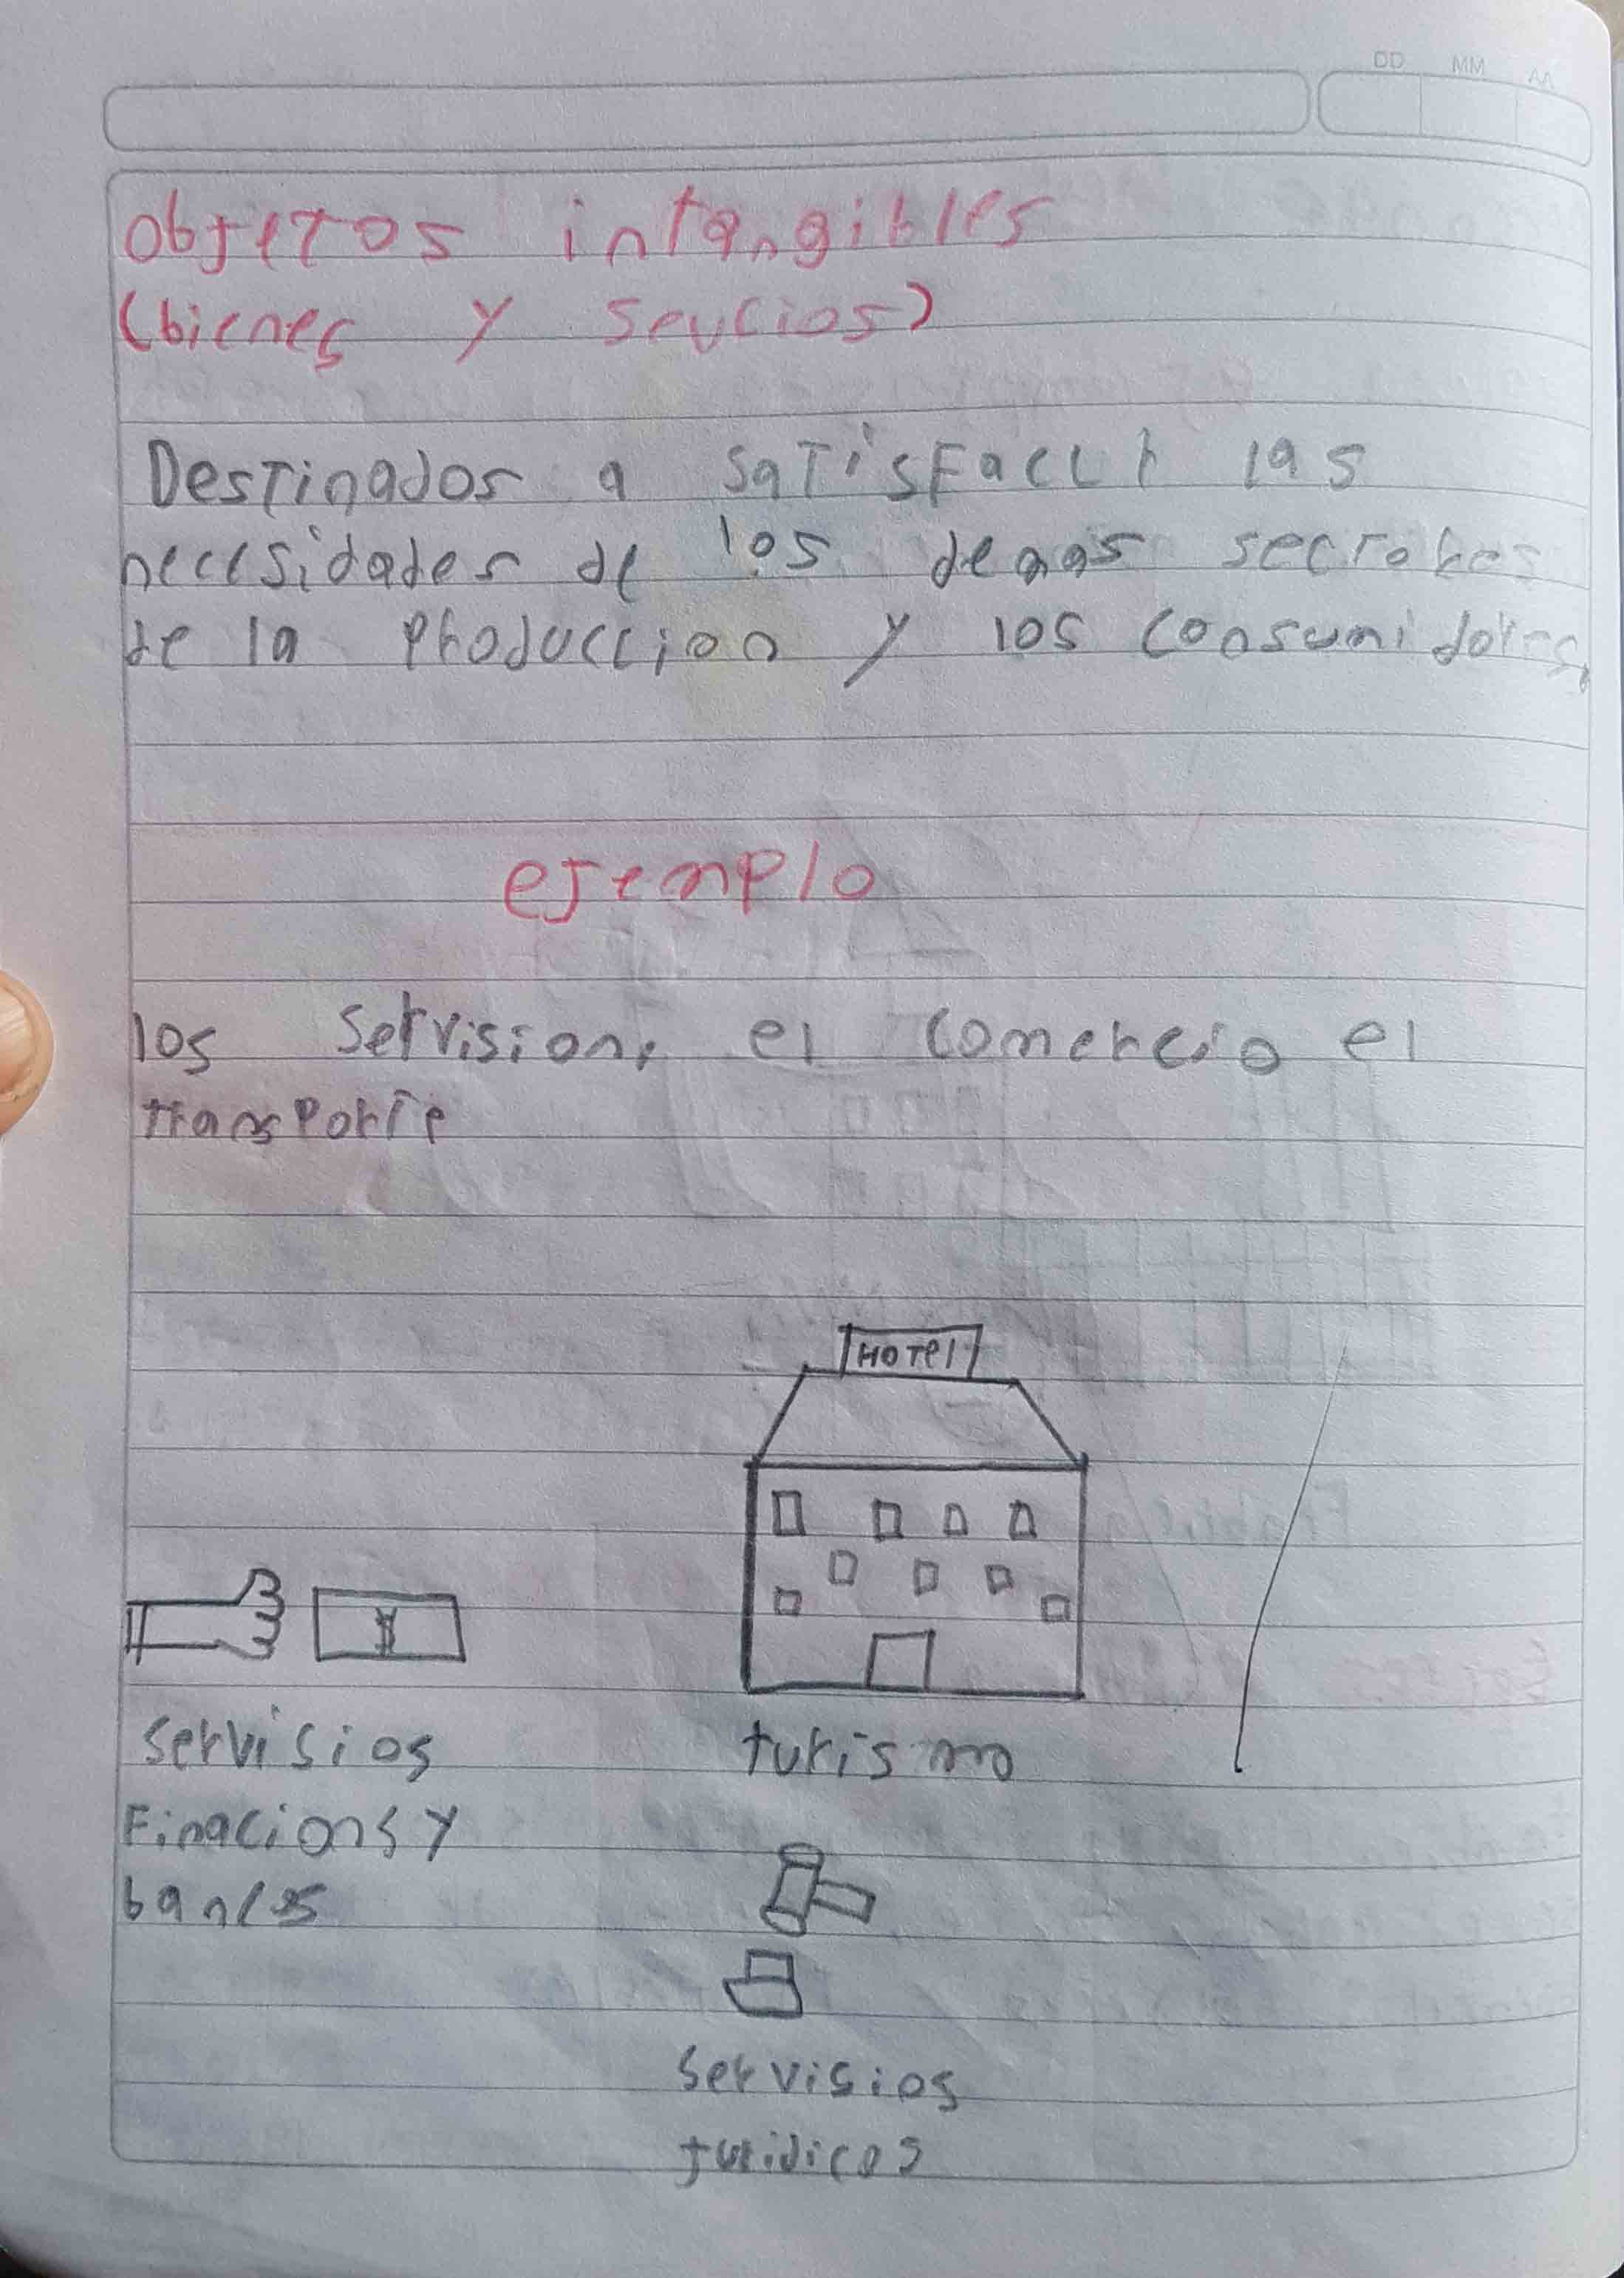 DD MM AA
objetos intangibles
(bienes y seucios)
Destinados a satisfacer las
necesidades de los demas sectores
de la produccion y los consumidores,
ejemplo
los servision, el comercio el
transporte
HOTel
servisios
Finacions y
bancos
turismo
servisios
juridicos